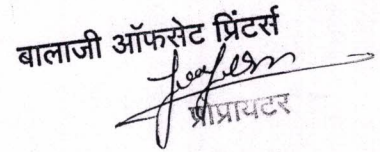 बालाजी ऑफसेट प्रिंटर्स
प्रोप्रायटर